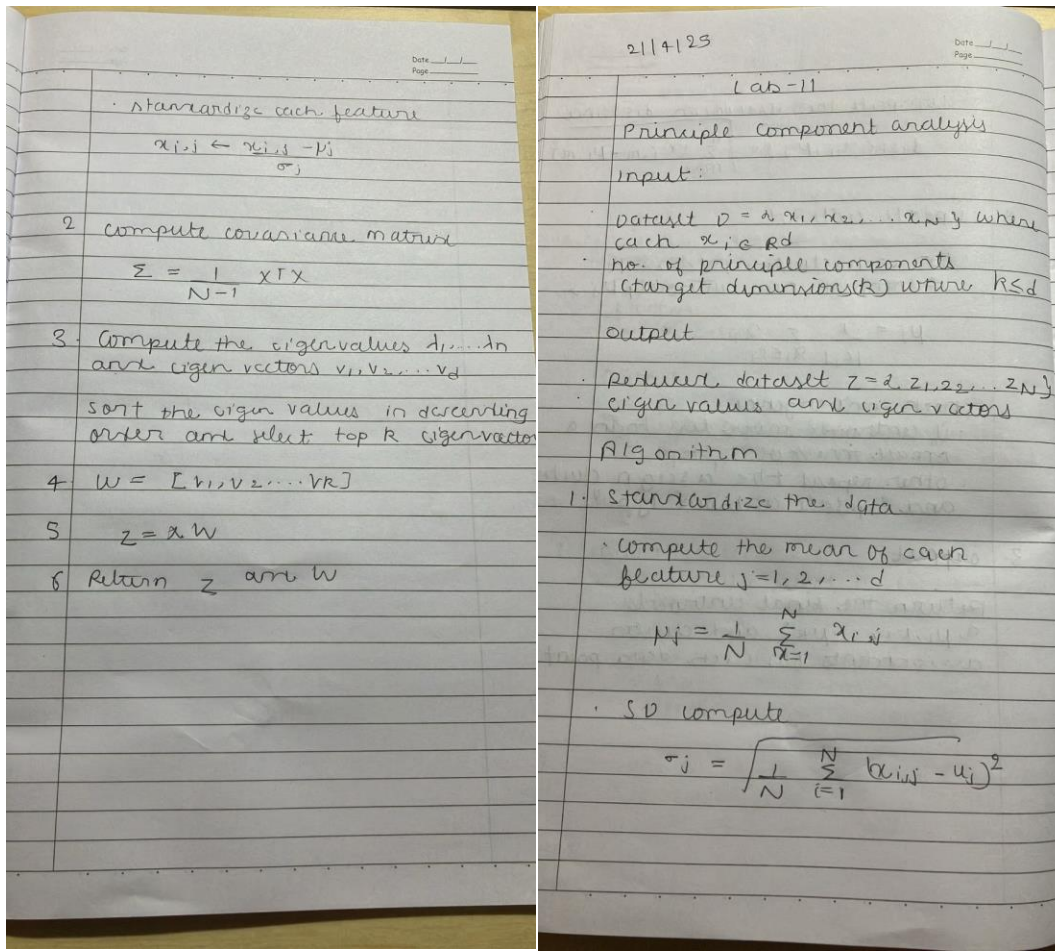 Date __/__/__
Page ____
· standardize each feature
xi,j ← xi,j - μj / σj
2 compute covariance matrix
Σ = 1/N-1 XTX
3 Compute the eigenvalues λ1,....λn
and eigen vectors v1,v2,...vd
sort the eigen values in descending
order and select top k eigenvector
4 W = [v1,v2....vk]
5 z = xW
6 Return z and W
21/4/25
Date __/__/__
Page ____
Lab-11
Principle component analysis
input:
· Dataset D = { x1, x2, ... xN } where
each xi ∈ Rd
· no. of principle components
(target dimensions(k) where k≤d
output
· Reduced dataset Z = { z1,z2,... zN}
· eigen values and eigen vectors
Algorithm
1. standardize the data
· compute the mean of each
feature j=1,2,...d
μj = 1/N Σ N x=1 xi,j
· SD compute
σj = √ 1/N Σ N i=1 (xi,j - uj)2